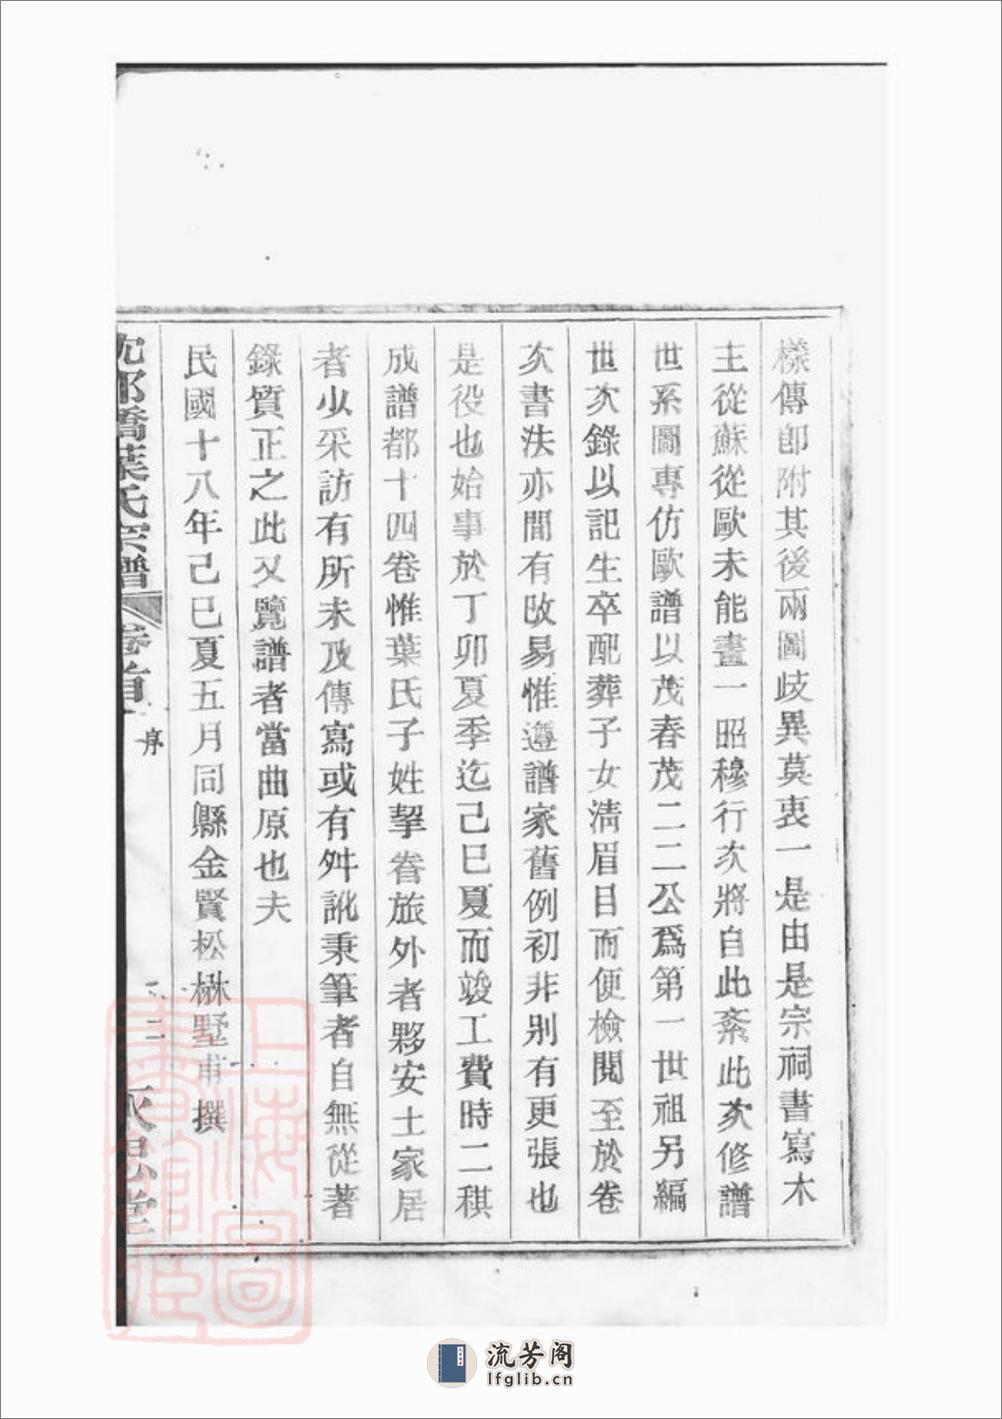 樣傳卽附其後兩圖歧異莫衷一是由是宗祠書寫木
主從蘇從歐未能畫一昭穆行次將自此紊此次修譜
世系圖專仿歐譜以茂春茂二二公爲第一世祖另編
世次錄以記生卒配葬子女淸眉目而便檢閱至於卷
次書法亦間有改易惟遵譜家舊例初非别有更張也
是役也始事於丁卯夏季迄己巳夏而竣工費時二稘
成譜都十四卷惟葉氏子姓挈眷旅外者夥安土家居
者少采訪有所未及傳寫或有舛訛秉筆者自無從著
錄質正之此又覽譜者當曲原也夫
民國十八年己巳夏五月同縣金賢松楙墅甫撰
橋葉氏宗譜 卷首 序 二 永思堂
上海圖書館藏
流芳阁
lfglib.cn